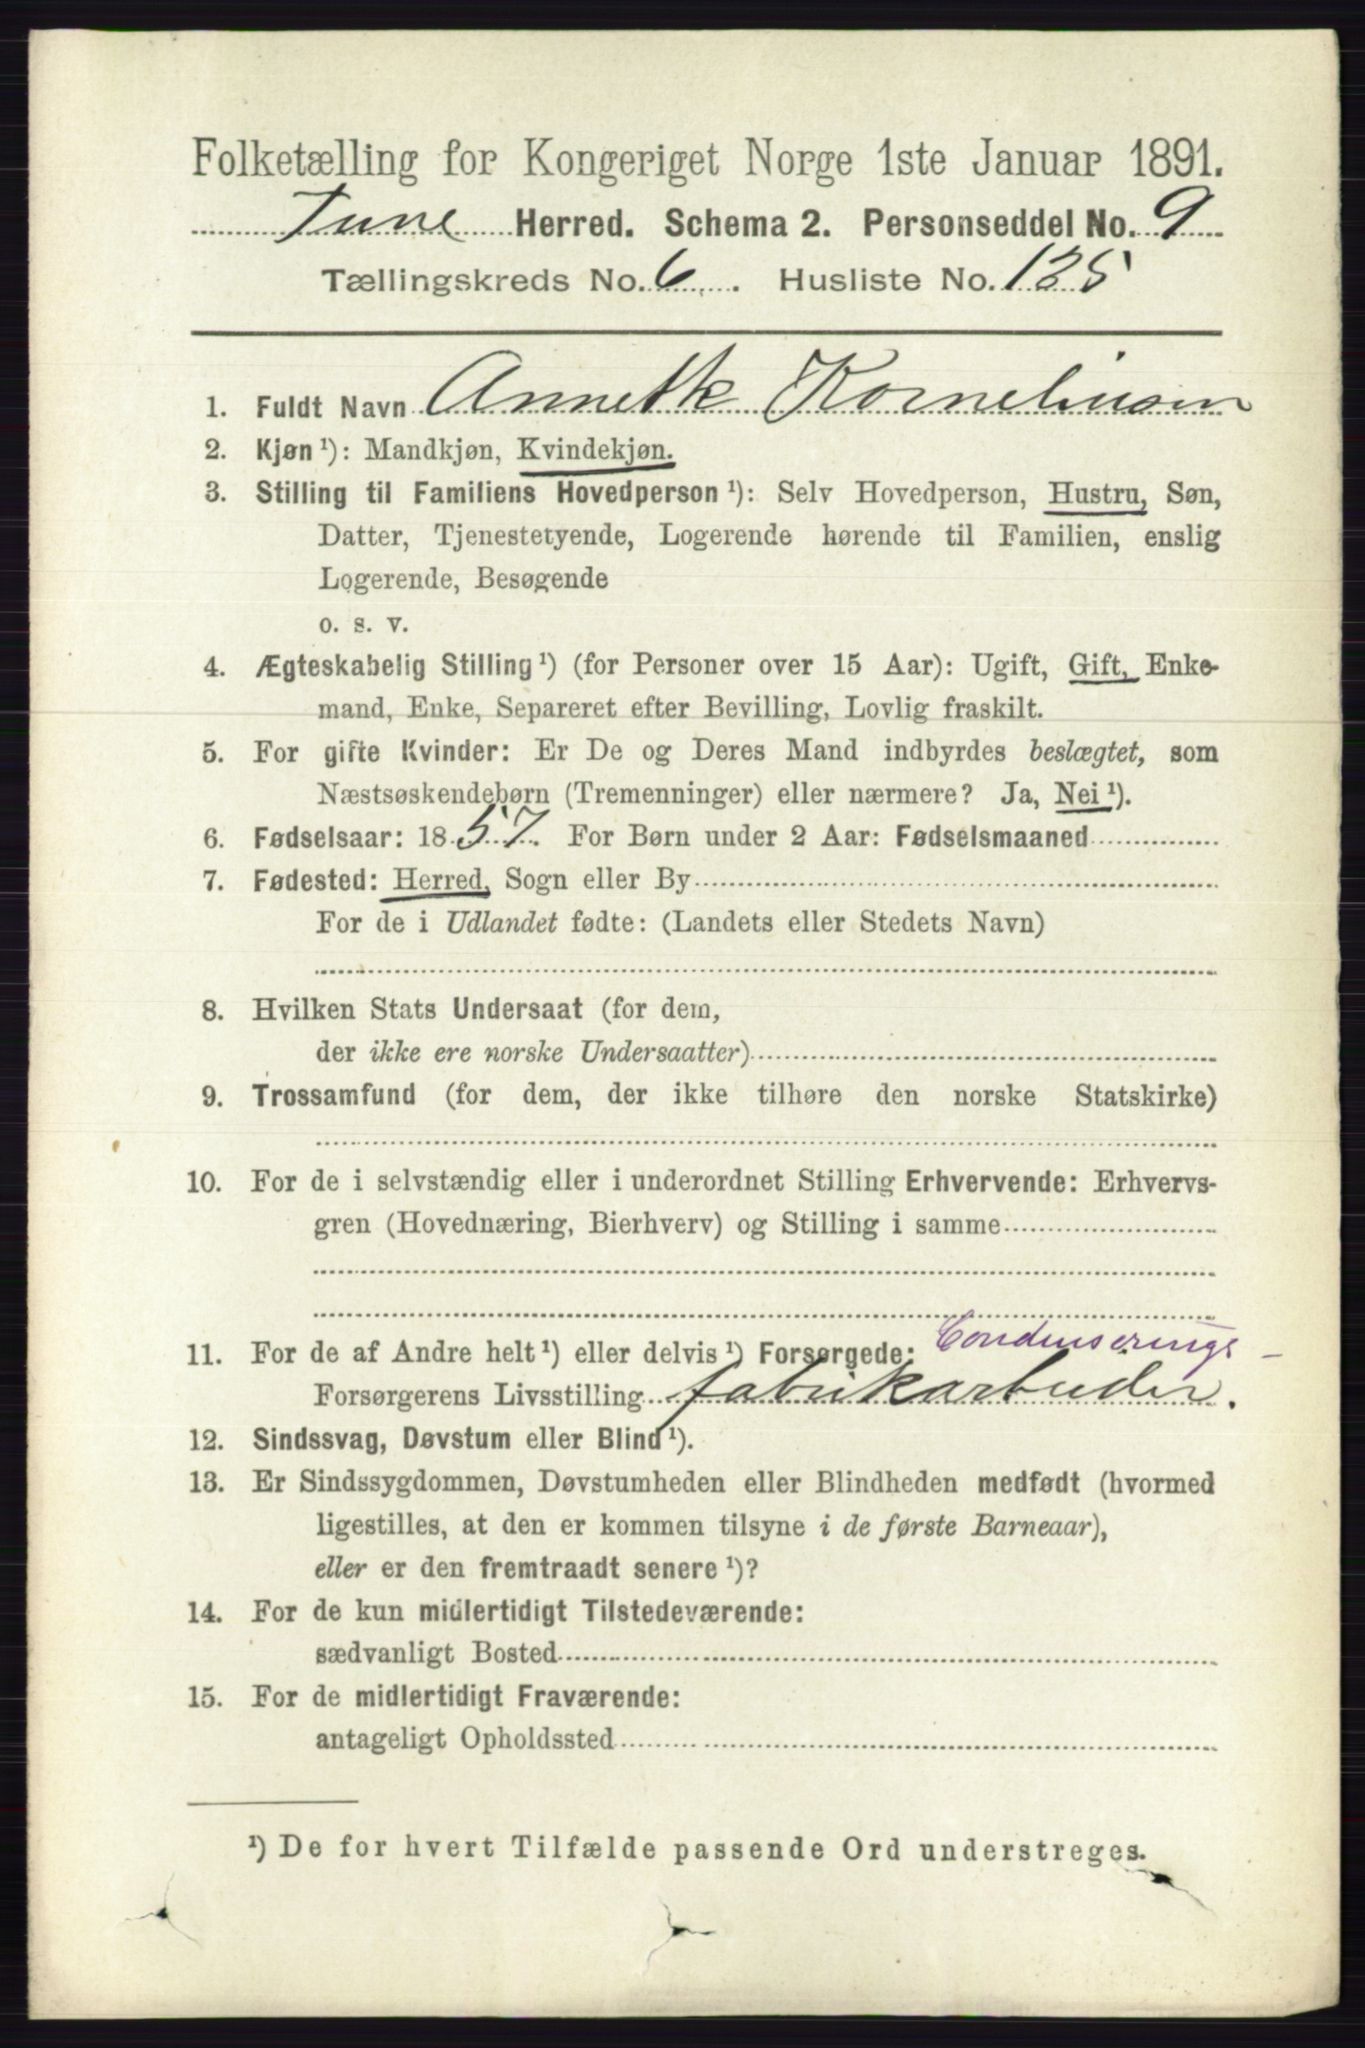 Folketælling for Kongeriget Norge 1ste Januar 1891.
Tune Herred. Schema 2. Personseddel No. 9
Tællingskreds No. 6. Husliste No. 125
1. Fuldt Navn Annette Korneliusen
2. Kjøn ¹): Mandkjøn, Kvindekjøn.
3. Stilling til Familiens Hovedperson ¹): Selv Hovedperson, Hustru, Søn,
Datter, Tjenestetyende, Logerende hørende til Familien, enslig
Logerende, Besøgende
o. s. v.
4. Ægteskabelig Stilling ¹) (for Personer over 15 Aar): Ugift, Gift, Enke-
mand, Enke, Separeret efter Bevilling, Lovlig fraskilt.
5. For gifte Kvinder: Er De og Deres Mand indbyrdes beslægtet, som
Næstsøskendebørn (Tremenninger) eller nærmere? Ja, Nei ¹).
6. Fødselsaar: 1857. For Børn under 2 Aar: Fødselsmaaned
7. Fødested: Herred, Sogn eller By
For de i Udlandet fødte: (Landets eller Stedets Navn)
8. Hvilken Stats Undersaat (for dem,
der ikke ere norske Undersaatter)
9. Trossamfund (for dem, der ikke tilhøre den norske Statskirke)
10. For de i selvstændig eller i underordnet Stilling Erhvervende: Erhvervs-
gren (Hovednæring, Bierhverv) og Stilling i samme
11. For de af Andre helt ¹) eller delvis ¹) Forsørgede: Condenserings-
Forsørgerens Livsstilling fabrikarbeider.
12. Sindssvag, Døvstum eller Blind ¹).
13. Er Sindssygdommen, Døvstumheden eller Blindheden medfødt (hvormed
ligestilles, at den er kommen tilsyne i de første Barneaar),
eller er den fremtraadt senere ¹)?
14. For de kun midlertidigt Tilstedeværende:
sædvanligt Bosted
15. For de midlertidigt Fraværende:
antageligt Opholdssted
¹) De for hvert Tilfælde passende Ord understreges.